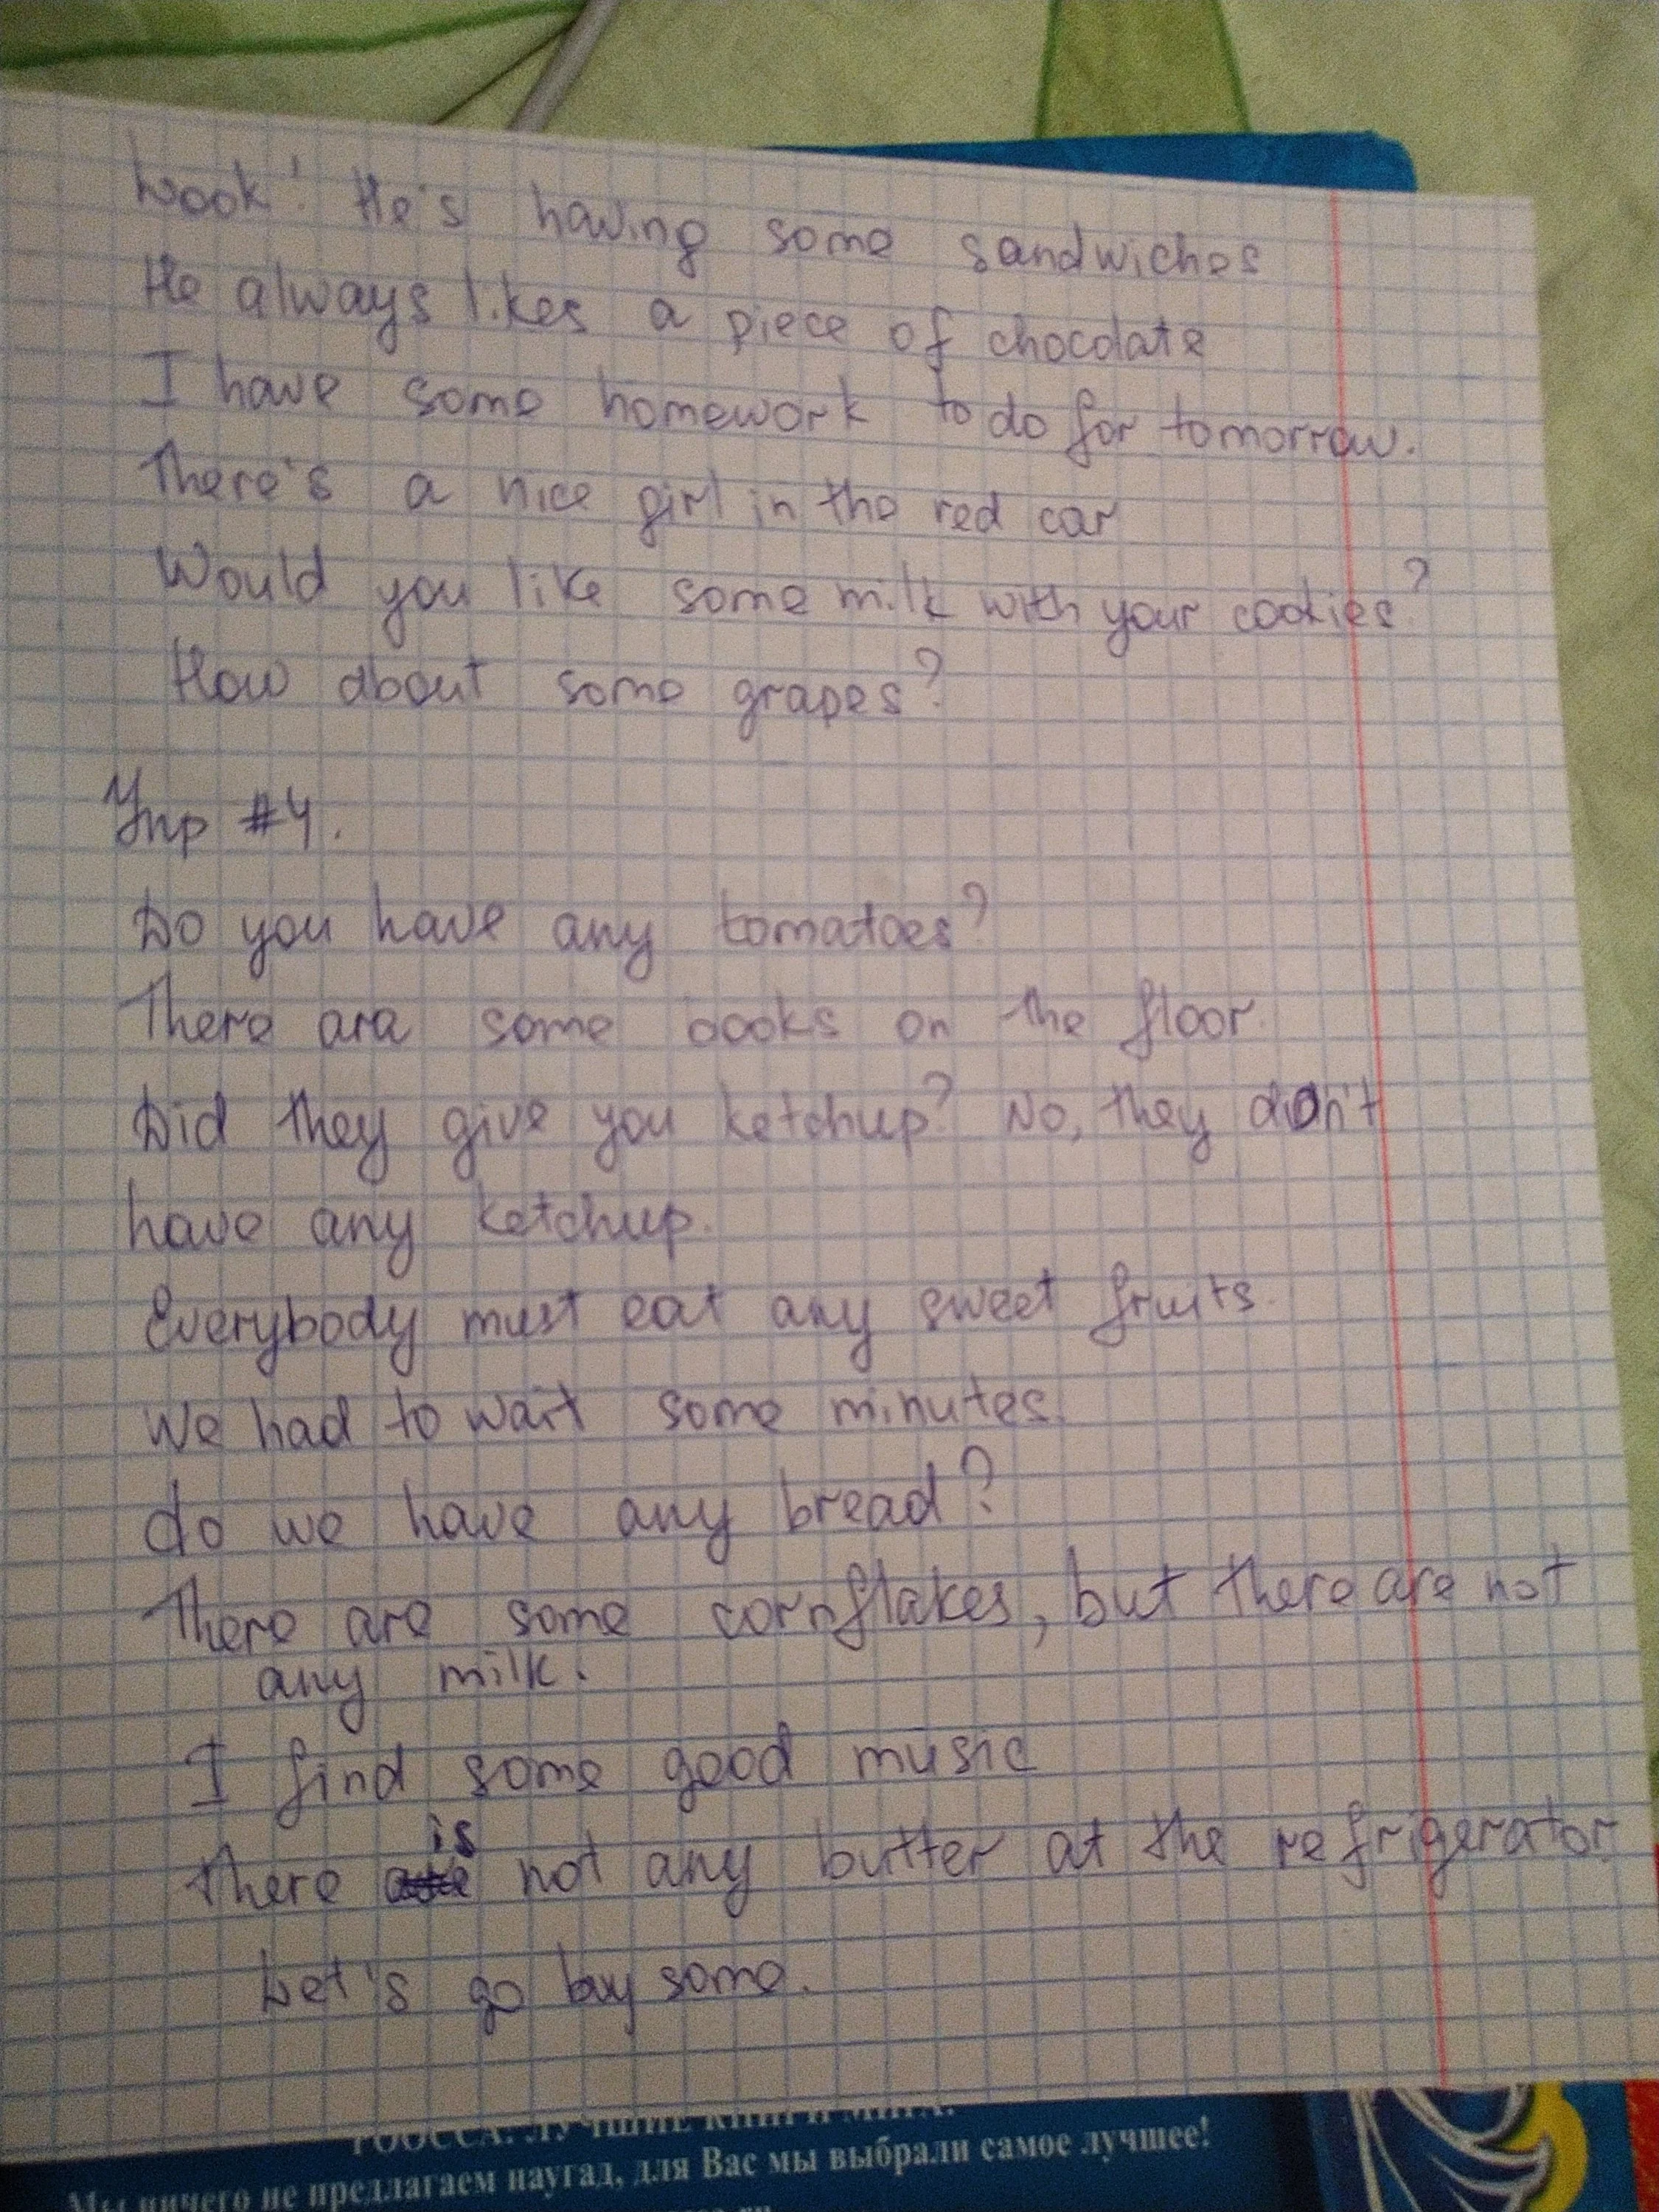 Look! He's having some sandwiches
He always likes a piece of chocolate
I have some homework to do for tomorrow.
There's a nice girl in the red car
Would you like some milk with your cookies?
How about some grapes?
Упр #4.
Do you have any tomatoes?
There are some books on the floor.
Did they give you ketchup? No, they don't
have any ketchup.
Everybody must eat any sweet fruits.
We had to wait some minutes.
do we have any bread?
There are some cornflakes, but there are not
any milk.
I find some good music
is
There not any butter at the refrigerator.
Let's go buy some.
РООССА: ЛУЧШИЕ КНИГИ МИРА.
Мы ничего не предлагаем наугад, для Вас мы выбрали самое лучшее!